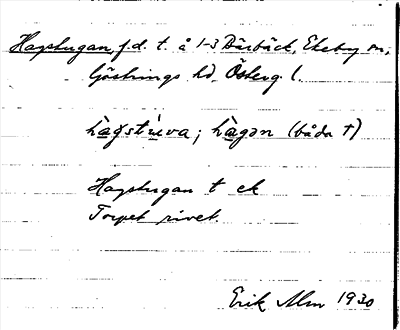 Hagstugan, f.d. t. å 1-3 Bärbäck, Ekeby sn,
Göstrings hd, Österg. l.
hagstuva; hagen (båda †)
Hagstugan t ek
Torpet rivet.
Erik Alm 1930